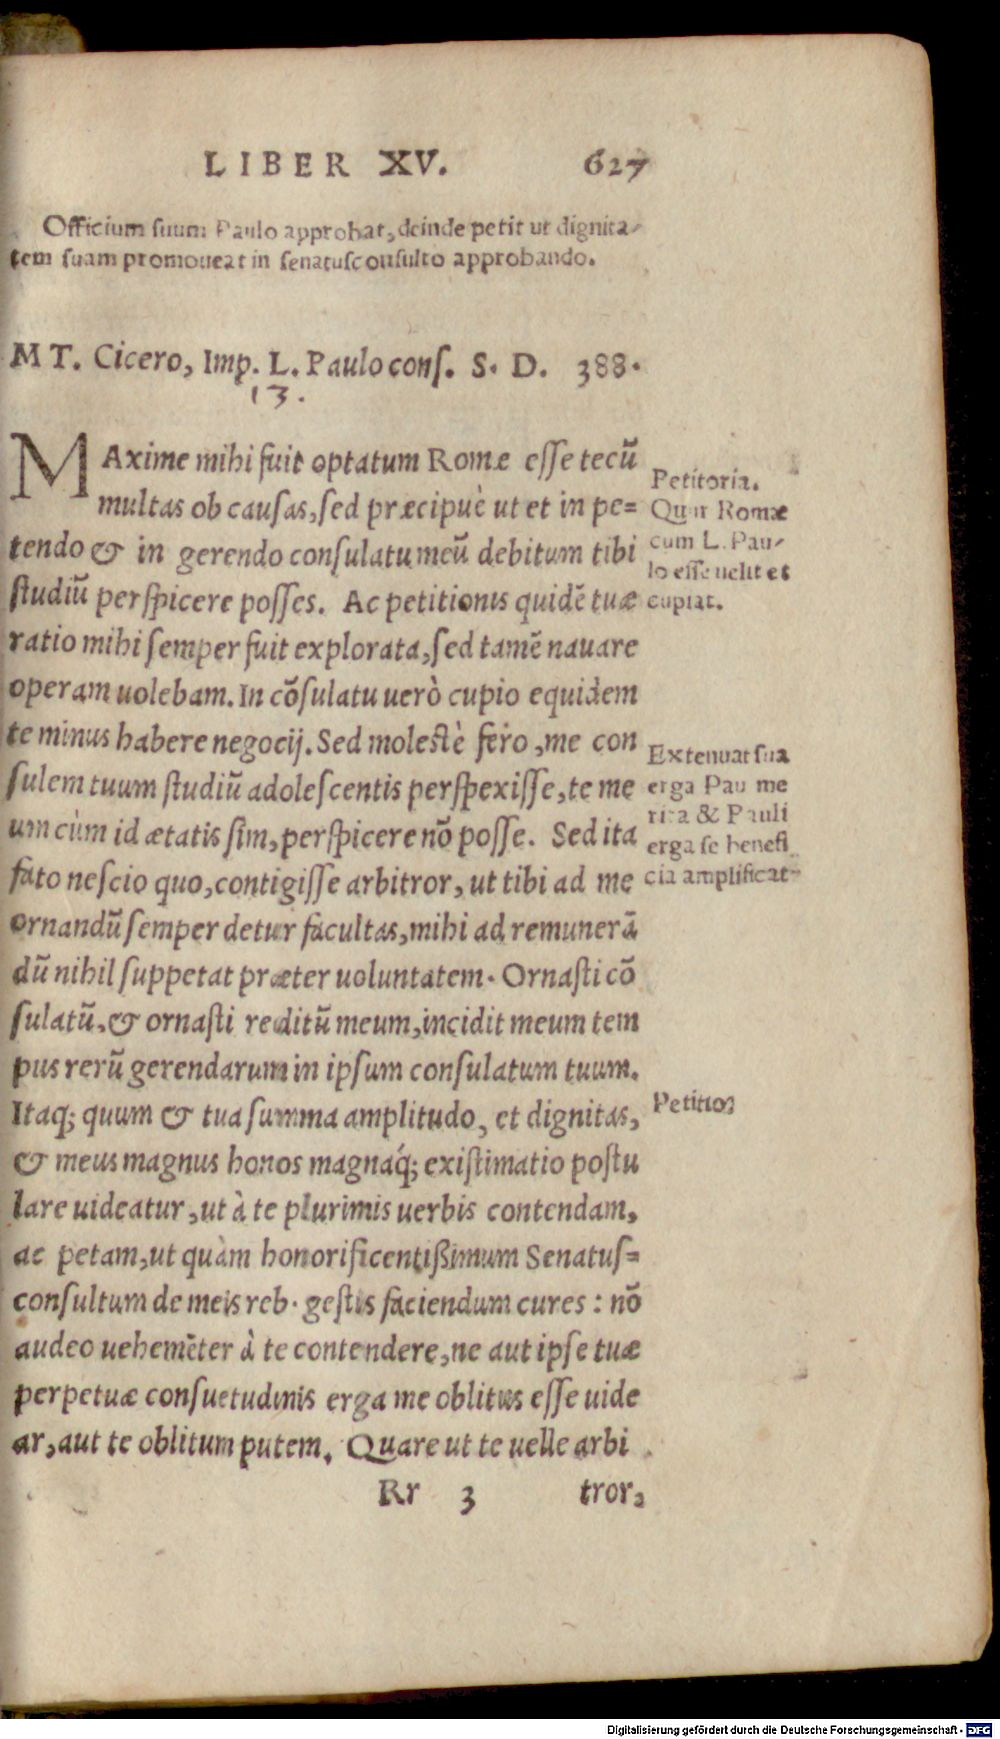 LIBER XV. 627
Officium suum Paulo approbat, deinde petit ut dignita-
tem suam promoueat in senatusconsulto approbando.
M T. Cicero, Imp. L. Paulo cons. S. D. 388.
13.
MAxime mihi fuit optatum Romæ esse tecū
multas ob causas, sed præcipuè ut et in pe=
tendo & in gerendo consulatu meū debitum tibi
studiū perspicere posses. Ac petitionis quidē tuæ
ratio mihi semper fuit explorata, sed tamē nauare
operam uolebam. In cōsulatu uerò cupio equidem
te minus habere negocij. Sed molestè fero, me con
sulem tuum studiū adolescentis perspexisse, te me
um cùm id ætatis sim, perspicere nō posse. Sed ita
fato nescio quo, contigisse arbitror, ut tibi ad me
ornandū semper detur facultas, mihi ad remunerā
dū nihil suppetat præter uoluntatem. Ornasti cō
sulatū, & ornasti reditū meum, incidit meum tem
pus rerū gerendarum in ipsum consulatum tuum.
Itaq; quum & tua summa amplitudo, et dignitas,
& meus magnus honos magnáq; existimatio postu
lare uideatur, ut à te plurimis uerbis contendam,
ac petam, ut quàm honorificentißimum Senatus=
consultum de meis reb. gestis faciendum cures: nō
audeo uehemēter à te contendere, ne aut ipse tuæ
perpetuæ consuetudinis erga me oblitus esse uide
ar, aut te oblitum putem. Quare ut te uelle arbi
Rr 3 tror,
Petitoria.
Cur Romæ
cum L. Pau-
lo esse uelit et
cupiat.
Extenuat sua
erga Pau me
rita & Pauli
erga se benefi
cia amplificat
Petitio
Digitalisierung gefördert durch die Deutsche Forschungsgemeinschaft - DFG